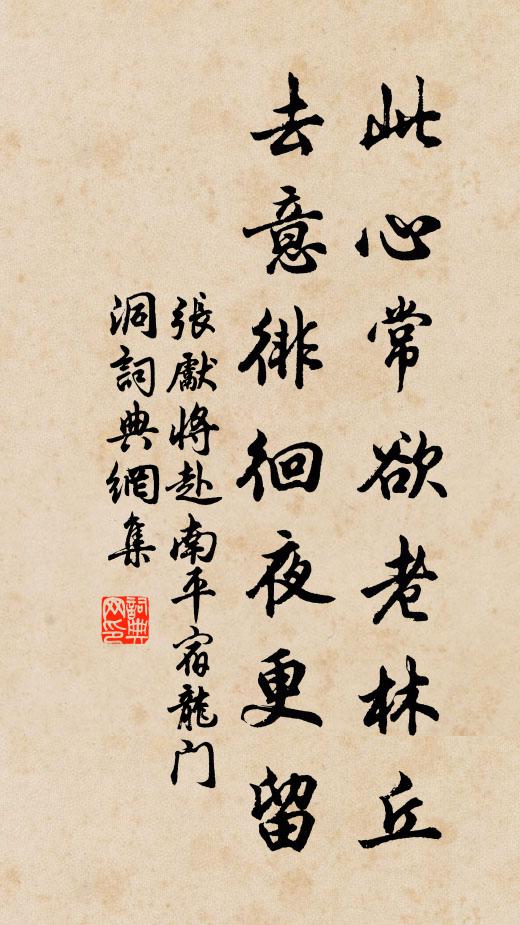 此心常欲老林丘
去意徘徊夜更留
張獻將赴南平宿龍门
洞詞典網集
詞典网印